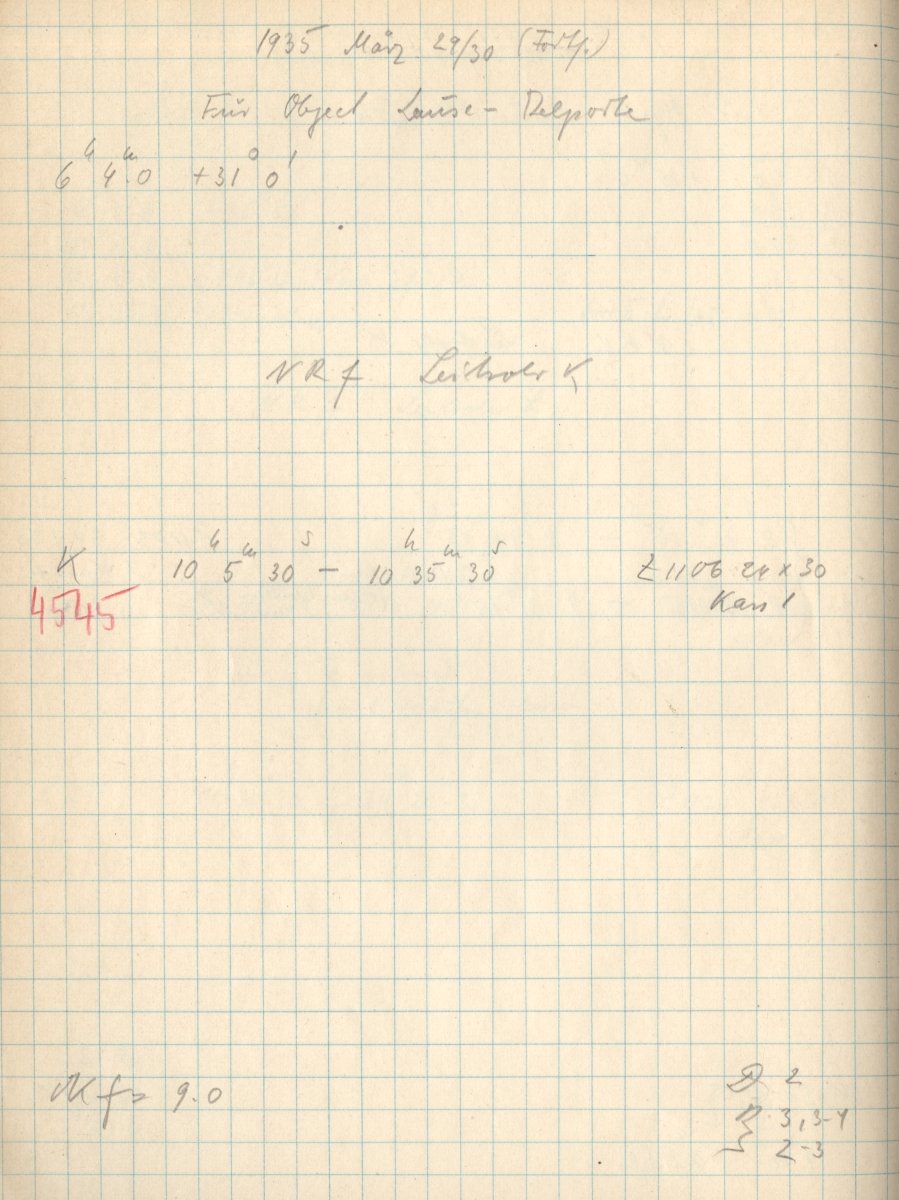 1935 März 29/30 (Fortf.)
Für Object Lause - Delporte
6h 4m.0 +31° 0'
NRf Leitrohr K
K 10h 5m 30s — 10h 35m 30s Z 1106 24 x 30
4545 Kass 1
Kf = 9.0
D 2
3,3-4
2-3